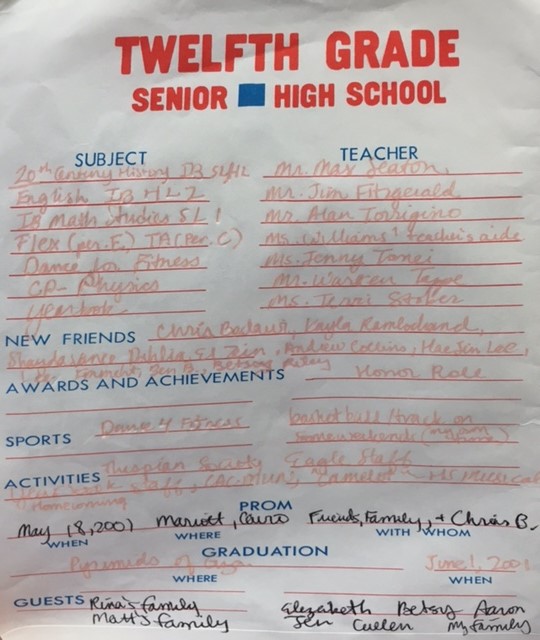 TWELFTH GRADE
SENIOR HIGH SCHOOL
SUBJECT TEACHER
20th Century History IB SL/HL Mr. Max Seaton
English IB HL2 Mr. Jim Fitzgerald
IB Math Studies SL1 Mr. Alan
Flex (per. F.) TA (Per. C) Ms. Williams' teacher's aide
Dance for Fitness Ms. Jenny
CP- Physics Mr. Warren
Yearbook Ms. Terri
NEW FRIENDS Chris Kayla
Dahlia, Andrew Collins, Hae Jin Lee,
Jen B., Betsy
AWARDS AND ACHIEVEMENTS Honor Roll
SPORTS Dance 4 Fitness basketball/track on
some weekends (my own
ACTIVITIES Thespian Society Eagle Staff
Yearbook Staff, "Camelot" - HS musical
Homecoming
PROM
May 18, 2001 Mariott, Cairo Friends, Family, + Chris B.
WHEN WHERE WITH WHOM
GRADUATION
Pyramids of Giza June 1, 2001
WHERE WHEN
GUESTS Rina's family Elizabeth Betsy Aaron
Matt's family Jen Cullen My family